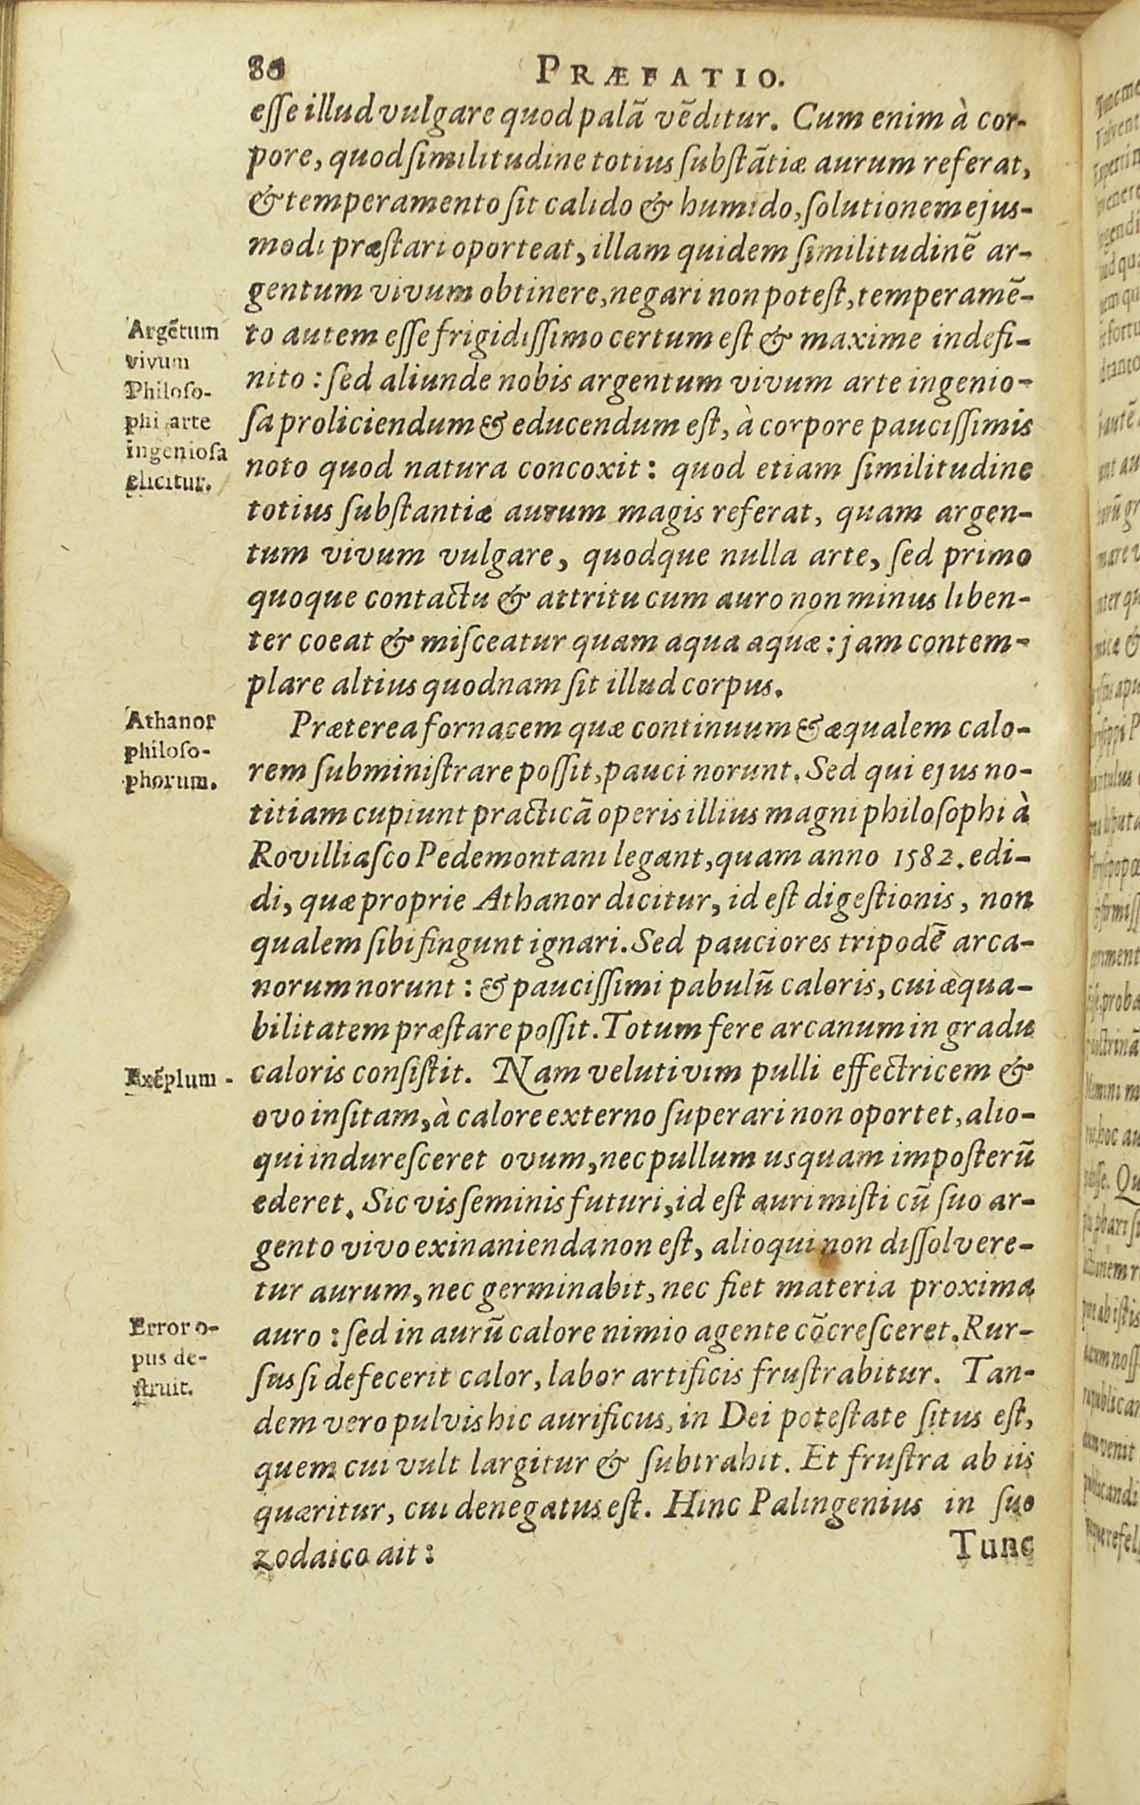 80
PRÆFATIO.
esse illud vulgare quod palã vẽditur. Cum enim à cor-
pore, quod similitudine totius substãtiæ aurum referat,
& temperamento sit calido & humido, solutionem ejus-
modi præstari oporteat, illam quidem similitudinẽ ar-
gentum vivum obtinere, negari non potest, temperamẽ-
Argẽtum
vivum
Philoso-
phi arte
ingeniosa
elicitur.
to autem esse frigidissimo certum est & maxime indefi-
nito: sed aliunde nobis argentum vivum arte ingenio-
sa proliciendum & educendum est, à corpore paucissimis
noto quod natura concoxit: quod etiam similitudine
totius substantiæ aurum magis referat, quam argen-
tum vivum vulgare, quodque nulla arte, sed primo
quoque contactu & attritu cum auro non minus liben-
ter coeat & misceatur quam aqua aquæ: jam contem-
plare altius quodnam sit illud corpus.
Athanor
philoso-
phorum.
Præterea fornacem quæ continuum & æqualem calo-
rem subministrare possit, pauci norunt. Sed qui ejus no-
titiam cupiunt practicã operis illius magni philosophi à
Rovilliasco Pedemontani legant, quam anno 1582. edi-
di, quæ proprie Athanor dicitur, id est digestionis, non
qualem sibi fingunt ignari. Sed pauciores tripodẽ arca-
norum norunt: & paucissimi pabulũ caloris, cui æqua-
bilitatem præstare possit. Totum fere arcanum in gradu
Exẽplum
caloris consistit. Nam veluti vim pulli effectricem &
ovo insitam, à calore externo superari non oportet, alio-
qui induresceret ovum, nec pullum usquam imposterũ
ederet. Sic vis seminis futuri, id est auri misti cũ suo ar-
gento vivo exinanienda non est, alioqui non dissolvere-
tur aurum, nec germinabit, nec fiet materia proxima
Error o-
pus de-
struit.
auro: sed in aurũ calore nimio agente cõcresceret. Rur-
sus si defecerit calor, labor artificis frustrabitur. Tan-
dem vero pulvis hic aurificus, in Dei potestate situs est,
quem cui vult largitur & subtrahit. Et frustra ab iis
quæritur, cui denegatus est. Hinc Palingenius in suo
zodaico ait:
Tunc